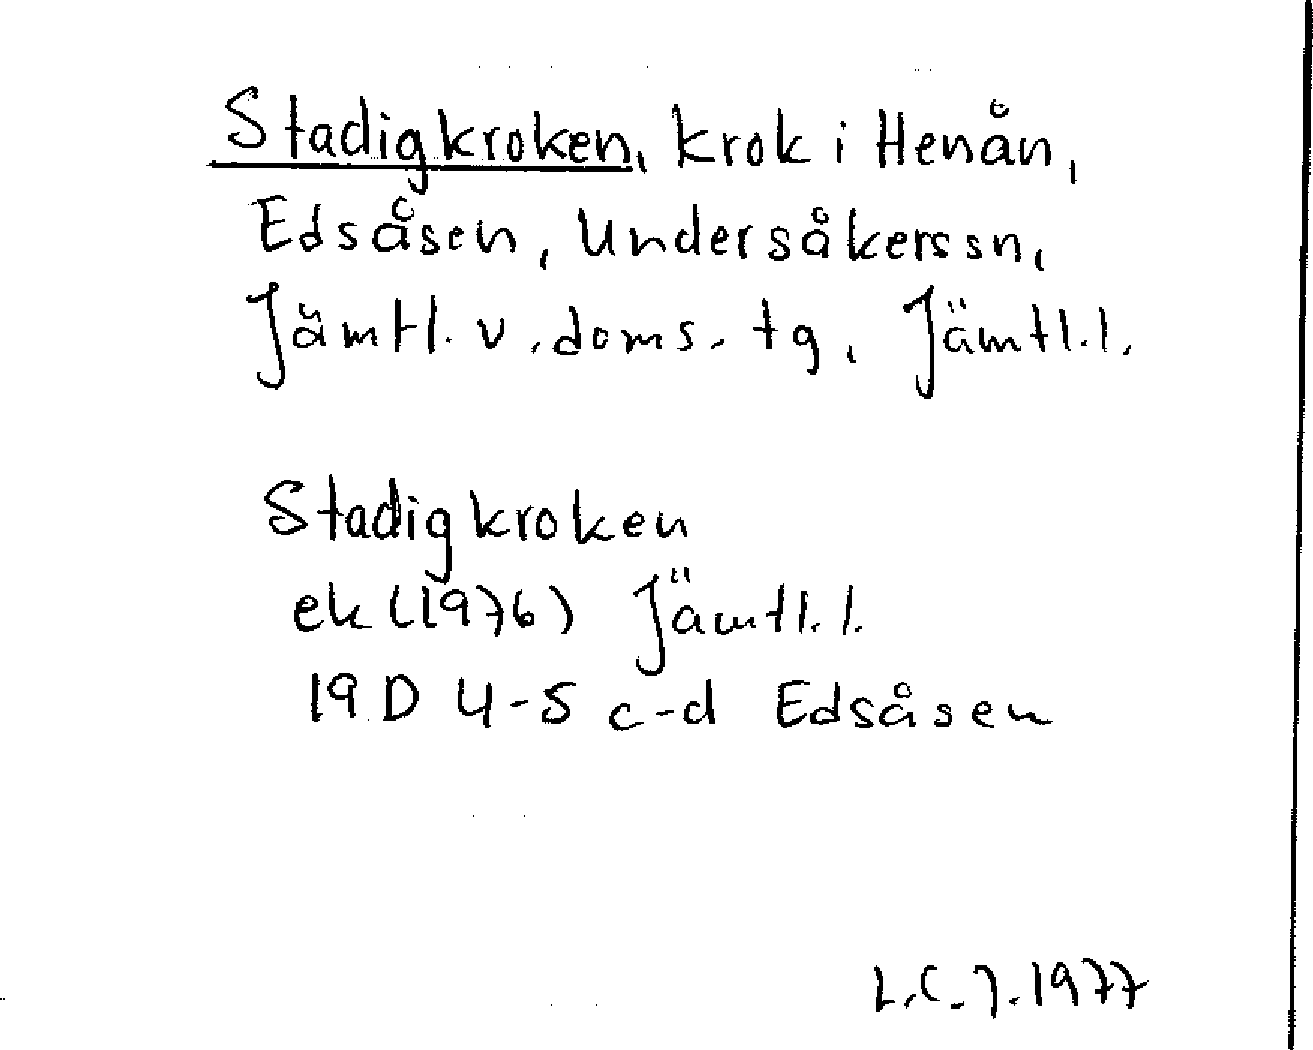 Stadigkroken, krok i Henån,
Edsåsen, Undersåkers sn,
Jämtl. v. doms. tg, Jämtl.l.
Stadigkroken
ek (1976) Jämtl. l.
19 D 4-5 c-d Edsåsen
L.C.J. 1977